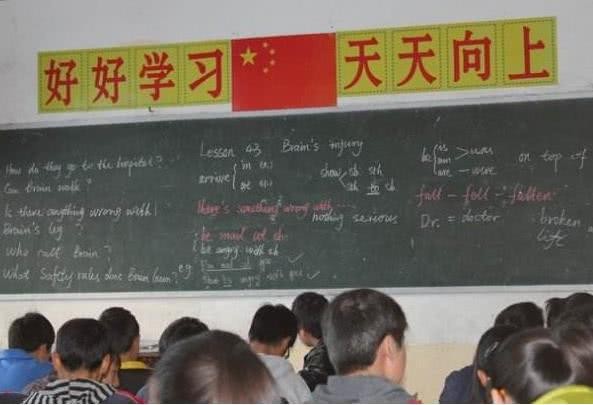 好好学习 天天向上
Lesson 43, Brain's injury
How do they go to the hospital?
Can Brain walk?
Is there anything wrong with
Brain's leg?
Who call Brain?
What Safety rules does Brain learn?
arrive in
at
There's something wrong with ...
be mad at sb
be angry with sb
e.g.
show sb sth
sth to sb
nothing serious
be is was
am
are were
on top of
fall - fell - fallen
Dr. = doctor
broken